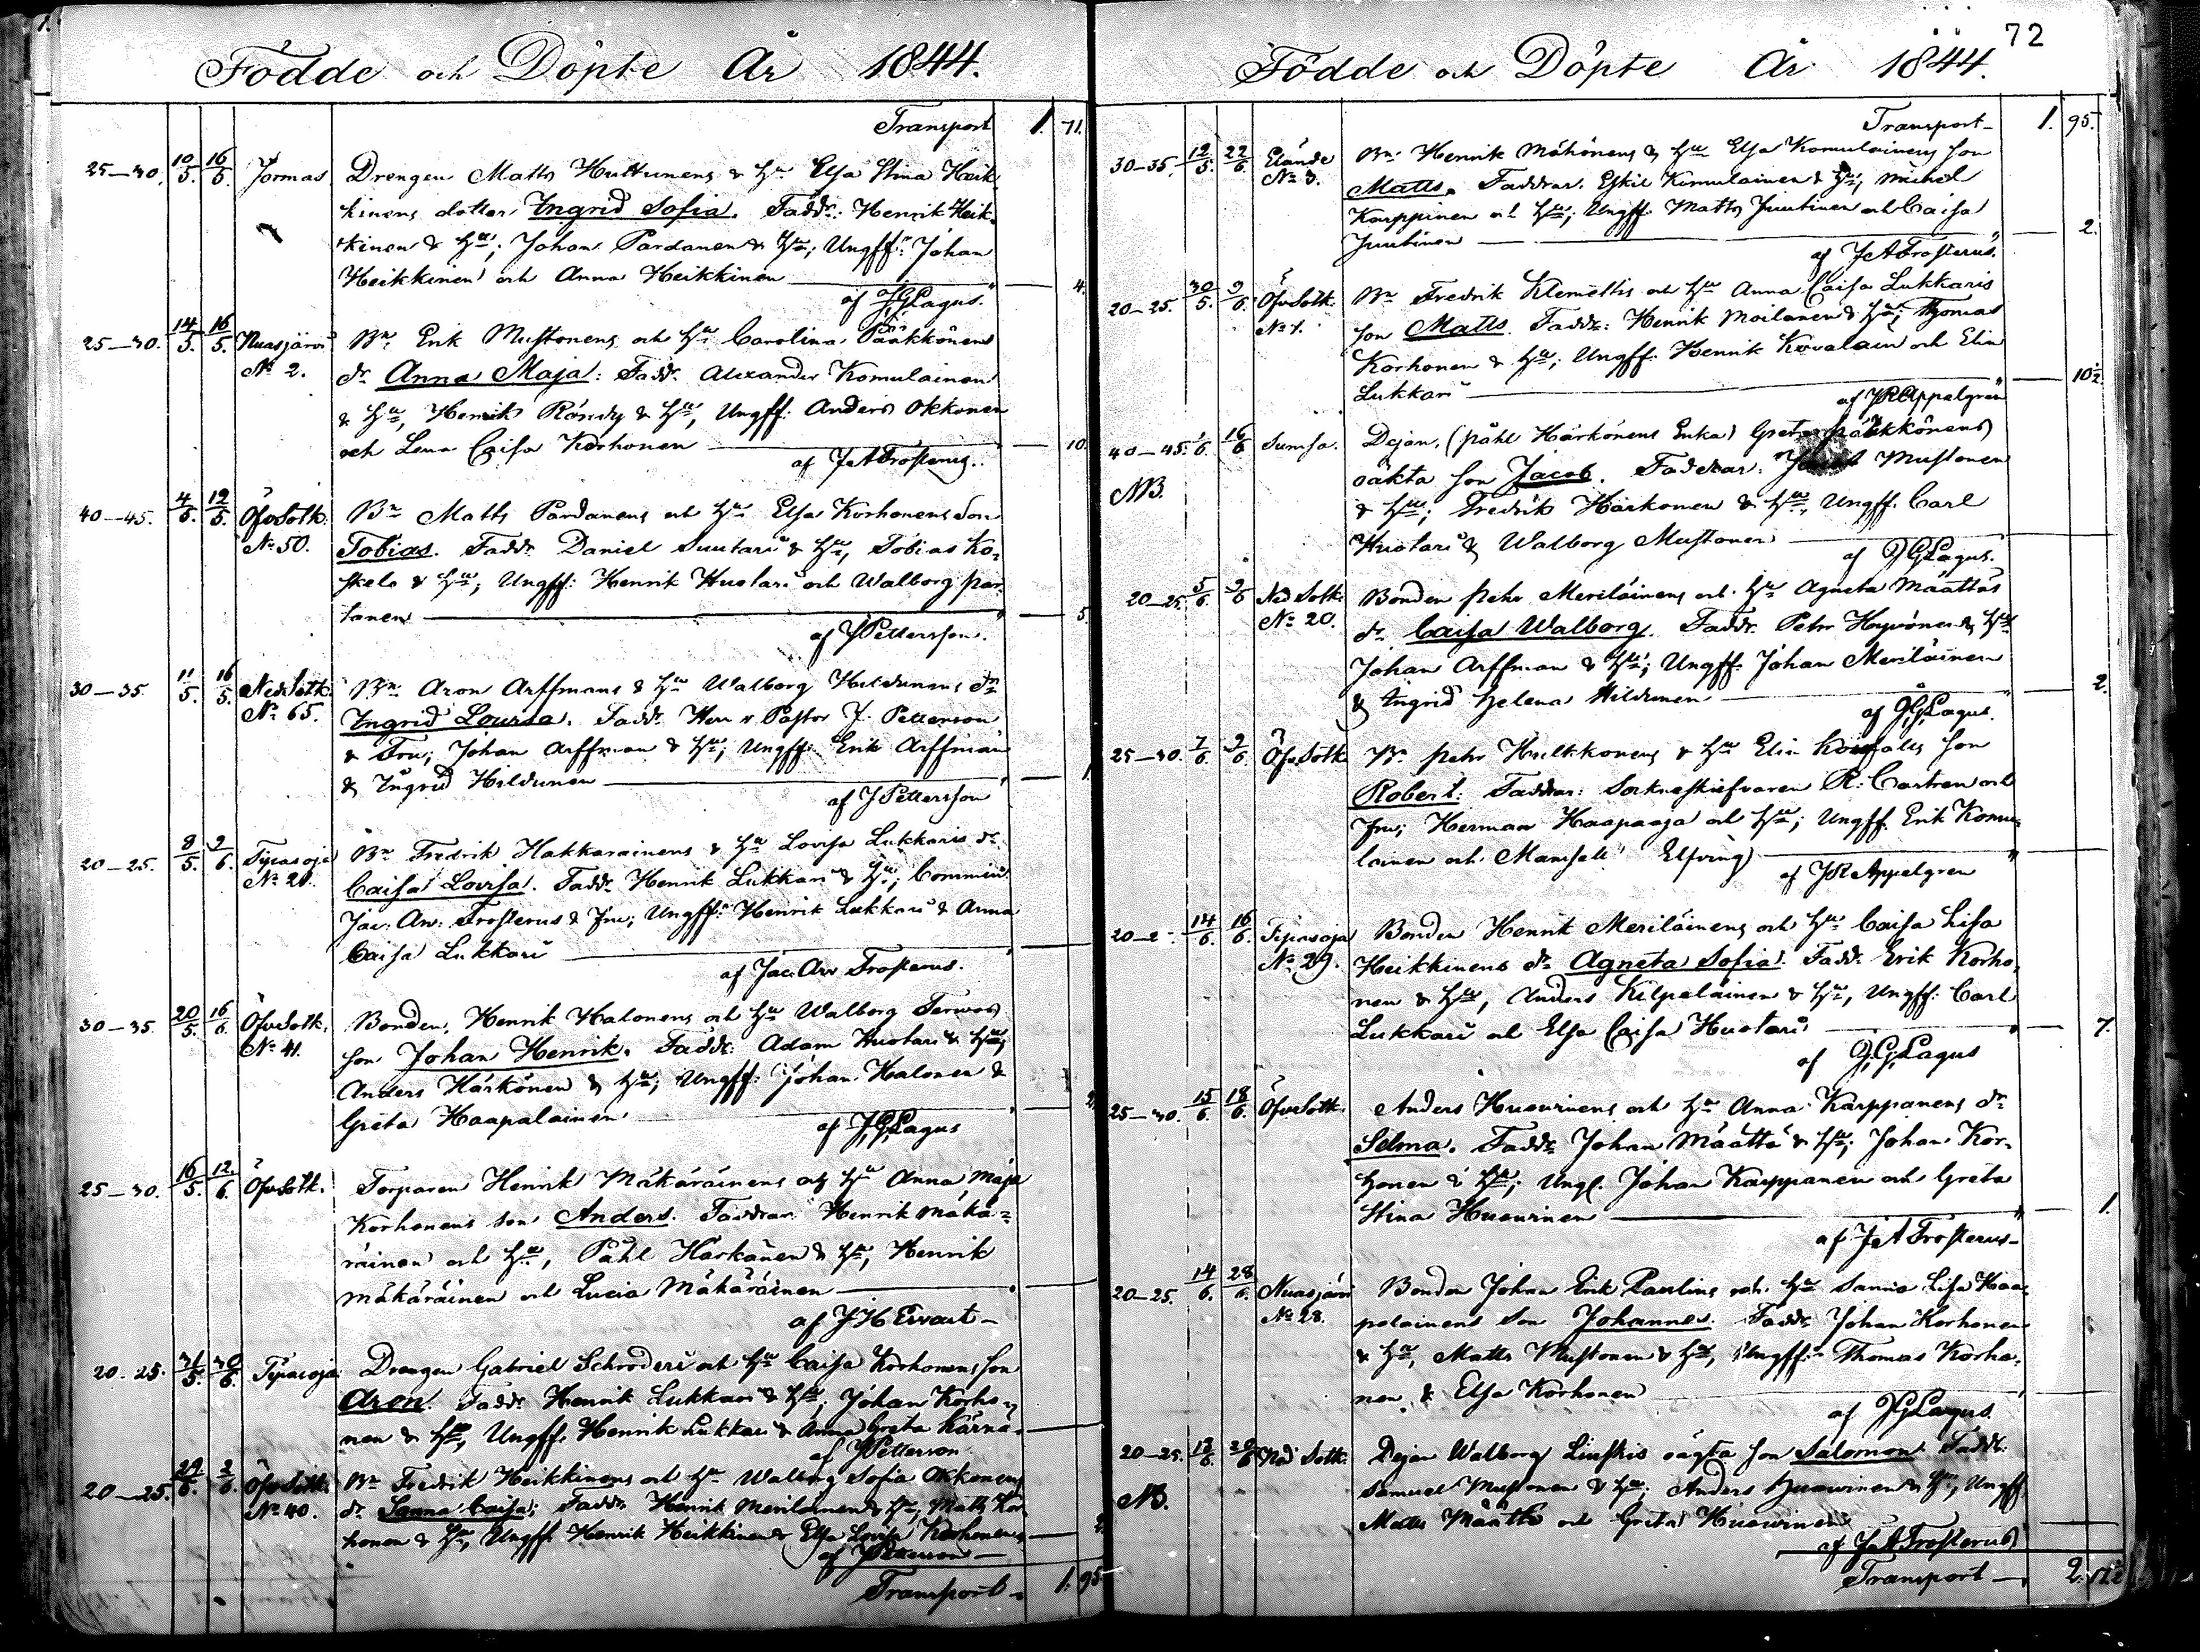 Födde och Döpte År 1844.
Transport 1. 71.
25—30. 10/5. 16/5. Jormas Drengen Matts Huttunens & Hu Elsa Stina Heik
kinens dotter Ingrid Sofia. Fadd: Henrik Heik-
kinen & Hu; Johan Pardanen & Hu; Ungff: Johan
Heikkinen och Anna Heikkinen 4.
af JGLagus.
25—30. 14/5. 16/5. Nuasjärvi Bn Erik Mustonens och Hu Carolina Pääkkönens
No 2. dr Anna Maja: Fadd. Alexander Komulainen
& Hu, Henrik Rönby & Hu, Ungff: Anders Okkonen
och Lena Caisa Korhonen 10.
af JAFrosterus.
40—45. 12/5. ÖfvSotk. Bn Matts Pardanens och Hu Elsa Korhonens Son
No 50. Tobias. Fadd. Daniel Suutari & Hu, Tobias Ko-
skelo & Hu; Ungff: Henrik Huotari och Walborg Par-
tanen 5.
af JPettersson.
30—35. 11/5. 16/5. NedSotk. Bn Aron Arffmans & Hu Walborg Hildunens dr
No 65. Ingrid Lovisa. Fadd. Herr v. Pastor J. Petterson
& Fru; Johan Arffman & Hu; Ungff: Erik Arffman
& Ingrid Hildunen 1
af JPettersson
20—25. 8/5. 9/6. Tipasoja Bn Fredrik Hakkarainens & Hu Lovisa Lukkaris dr
Caisa Lovisa. Fadd. Henrik Lukkari & Hu; Commin:
Jac: Arv: Frosterus & Fru; Ungff: Henrik Lukkari & Anna
Caisa Lukkari
af Jac: Arv Frosterus.
30—35. 20/5. 16/6. ÖfvSotk. Bonden, Henrik Halonens och Hu Walborg Terwos
No 41. son Johan Henrik. Fadd: Adam Huotari & Hu;
Anders Härkönen & Hu; Ungff: Johan Halonen &
Greta Haapalainen
af JGLagus
25—30. 16/5. 12/6. ÖfvSotk. Torparen Henrik Mäkäräinens och Hu Anna Maja
Korhonens son Anders. Faddrar: Henrik Mäkä-
räinen och Hu, Påhl Härkönen & Hu, Henrik
Mäkäräinen och Lucia Mäkäräinen
af JHErvast
20-25. 30/6. Tipasoja Drengen Gabriel Schroderi och Hu Caisa Korhonens son
Aron. Fadd. Henrik Lukkari & Hu; Johan Korho-
nen & Hu, Ungff. Henrik Lukkari & Anna Greta Kärnä.
af JPetterson
20—25. 2/6. ÖfvSotk. Bn Fredrik Heikkinens och Hu Walborg Sofia Okkonens
No 40. dr Sanna Caisa: Fadd. Henrik Meriläinen & Hu, Matts Kor-
honen & Hu, Ungff. Henrik Heikkinen & Elsa Lovisa Korhonen
af JPetterson
Transport 1. 95
72
Födde och Döpte År 1844.
Transport 1. 95.
30—35. 12/5. 22/6. Bn: Henrik Mähönens & Hu Elsa Komulainens son
No 3. Matts. Faddrar. Eskil Kimulainen & Hu; Michel
Karppinen och Hu; Ungff. Matts Juutinen och Caisa
Juutinen 2.
af JAFrosterus.
20—25. 30/5. 9/6. ÖfvSotk. Bn Fredrik Klemettis och Hu Anna Caisa Lukkaris
No 1. son Matts. Fadd: Henrik Moilanen & Hu; Thomas
Korhonen & Hu; Ungff. Henrik Kovalain och Elin
Lukkari 10½.
af JRAppelgren
40—45. 1/6. 16/6 Sumsa. Dejan, (Påhl Härkönens Enka) Greta Pääkkönens
NB. oäkta son Jacob. Faddrar: Mustonen
& Hu; Fredrik Härkönen & Hu, Ungff. Carl
Huotari & Walborg Mustonen
af JGLagus.
20—25. 5/6. 9/6 Ned Sotk. Bonden Petr Meriläinens och Hu Agneta Määttäs
No 20. dr Caisa Walborg. Fadd. Petr Heyvönen & Hu
Johan Arffman & Hu; Ungff. Johan Meriläinen
& Ingrid Helena Hildunen 2.
af JGLagus.
25—30. 7/6. 9/6. ÖfvSotk Bn Petr Hulkkonens & Hu Elin son
Robert: Faddrar: Sockneskrifvaren R: Castren och
Fru; Herman Haapaoja och Hu; Ungff. Erik Komu-
lainen och Mamsell Elfving
af JRAppelgren
20—2 . 14/6. 16/6. Tipasoja Bonden Henrik Meriläinens och Hu Caisa Lisa
No 29. Heikkinens dr Agneta Sofia. Fadd. Erik Korho-
nen & Hu, Anders Kilpeläinen & Hu, Ungff: Carl
Lukkari och Elsa Caisa Huotari 7.
af JGLagus
25—30. 15/6. 18/6. ÖfvSotk. Anders Huovinens och Hu Anna Karppanens dr
Selma. Fadd: Johan Määttä & Hu; Johan Kor-
honen & Hu; Ungf. Johan Karppanen och Greta
Stina Huovinen 1.
af JAFrosterus
20—25. 14/6. 28/6. Nuasjärvi Bonden Johan Erik Paulins och Hu Sanna Lisa Haa-
No 28. palainens son Johannes. Fadd. Johan Korhonen
& Hu, Matts Mustonen & Hu, Ungff. Thomas Korho-
nen & Elsa Korhonen
af JGLagus.
20—25. Ned Sotk. Dejan Walborg oägta son Salomon. Fadd:
NB. Samuel Mustonen & Hu; Anders Huovinen & Hu, Ungff
Matts Määttä och Greta Huovinen
af JAFrosterus
Transport 2.